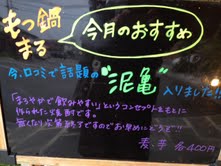 もつ鍋
まる
今月のおすすめ
今、口コミで話題の"泥亀"入りました!!
「まろやかで飲みやすい」というコンセプトをもとに
作られた焼酎です。
無くなり次第終了ですのでお早めにどうぞ!!
麦、芋 各400円